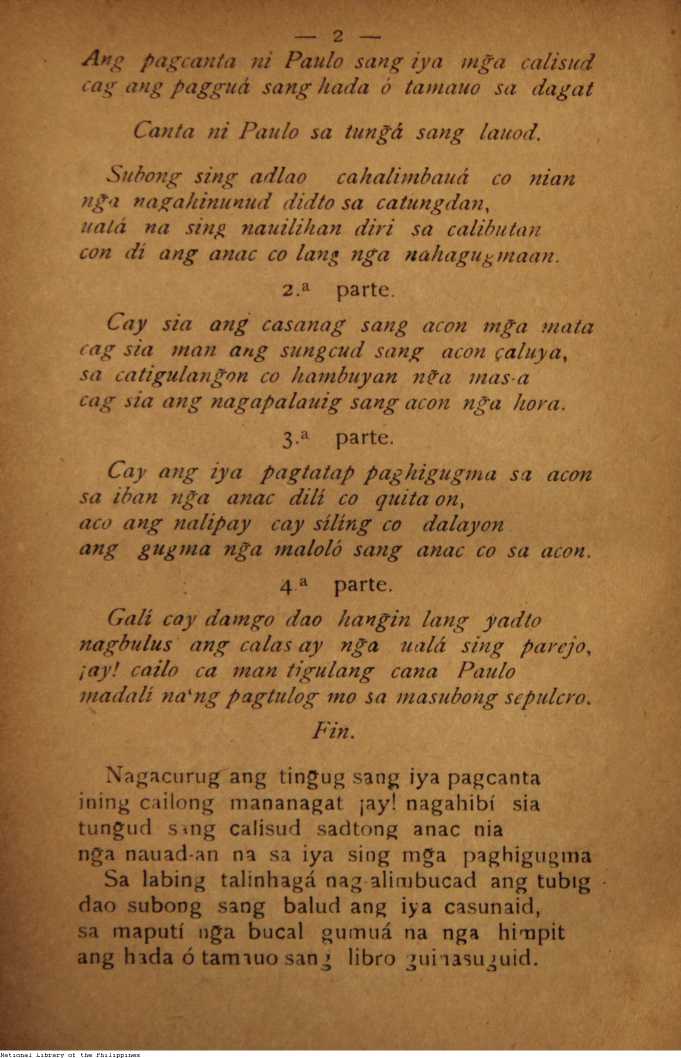 — 2 —
Ang pagcanta ni Paulo sang iya mg̃a calisud
cag ang pagguá sang hada ó tamauo sa dagat
Canta ni Paulo sa tung̃á sang lauod.
Subong sing adlao cahalimbauá co nian
ng̃a nagahinunud didto sa catungdan,
ualá na sing nauilihan diri sa calibutan
con dí ang anac co lang nga nahagugmaan.
2.ª parte.
Cay sia ang casanag sang acon mg̃a mata
cag sia man ang sungcud sang acon çaluya,
sa catigulang̃on co hambuyan ng̃a mas-a
cag sia ang nagapalauig sang acon ng̃a hora.
3.ª parte.
Cay ang iya pagtatap paghigugma sa acon
sa iban ng̃a anac dilí co quita on,
aco ang nalipay cay síling co dalayon
ang gugma ng̃a maloló sang anac co sa acon.
4.ª parte.
Galí cay damgo dao hang̃in lang yadto
nagbulus ang calas ay ng̃a ualá sing parejo,
¡ay! cailo ca man tigulang cana Paulo
madalí na'ng pagtulog mo sa masubong sepulcro.
Fin.
Nagacurug ang ting̃ug sang iya pagcanta
ining cailong mananagat ¡ay! nagahibí sia
tungud sang calisud sadtong anac nia
ng̃a nauad-an na sa iya sing mg̃a paghigugma
Sa labing talinhagá nag-alimbucad ang tubig
dao subong sang balud ang iya casunaid,
sa maputí ng̃a bucal gumuá na nga himpit
ang hada ó tamauo sang libro guinasuguid.
National Library of the Philippines